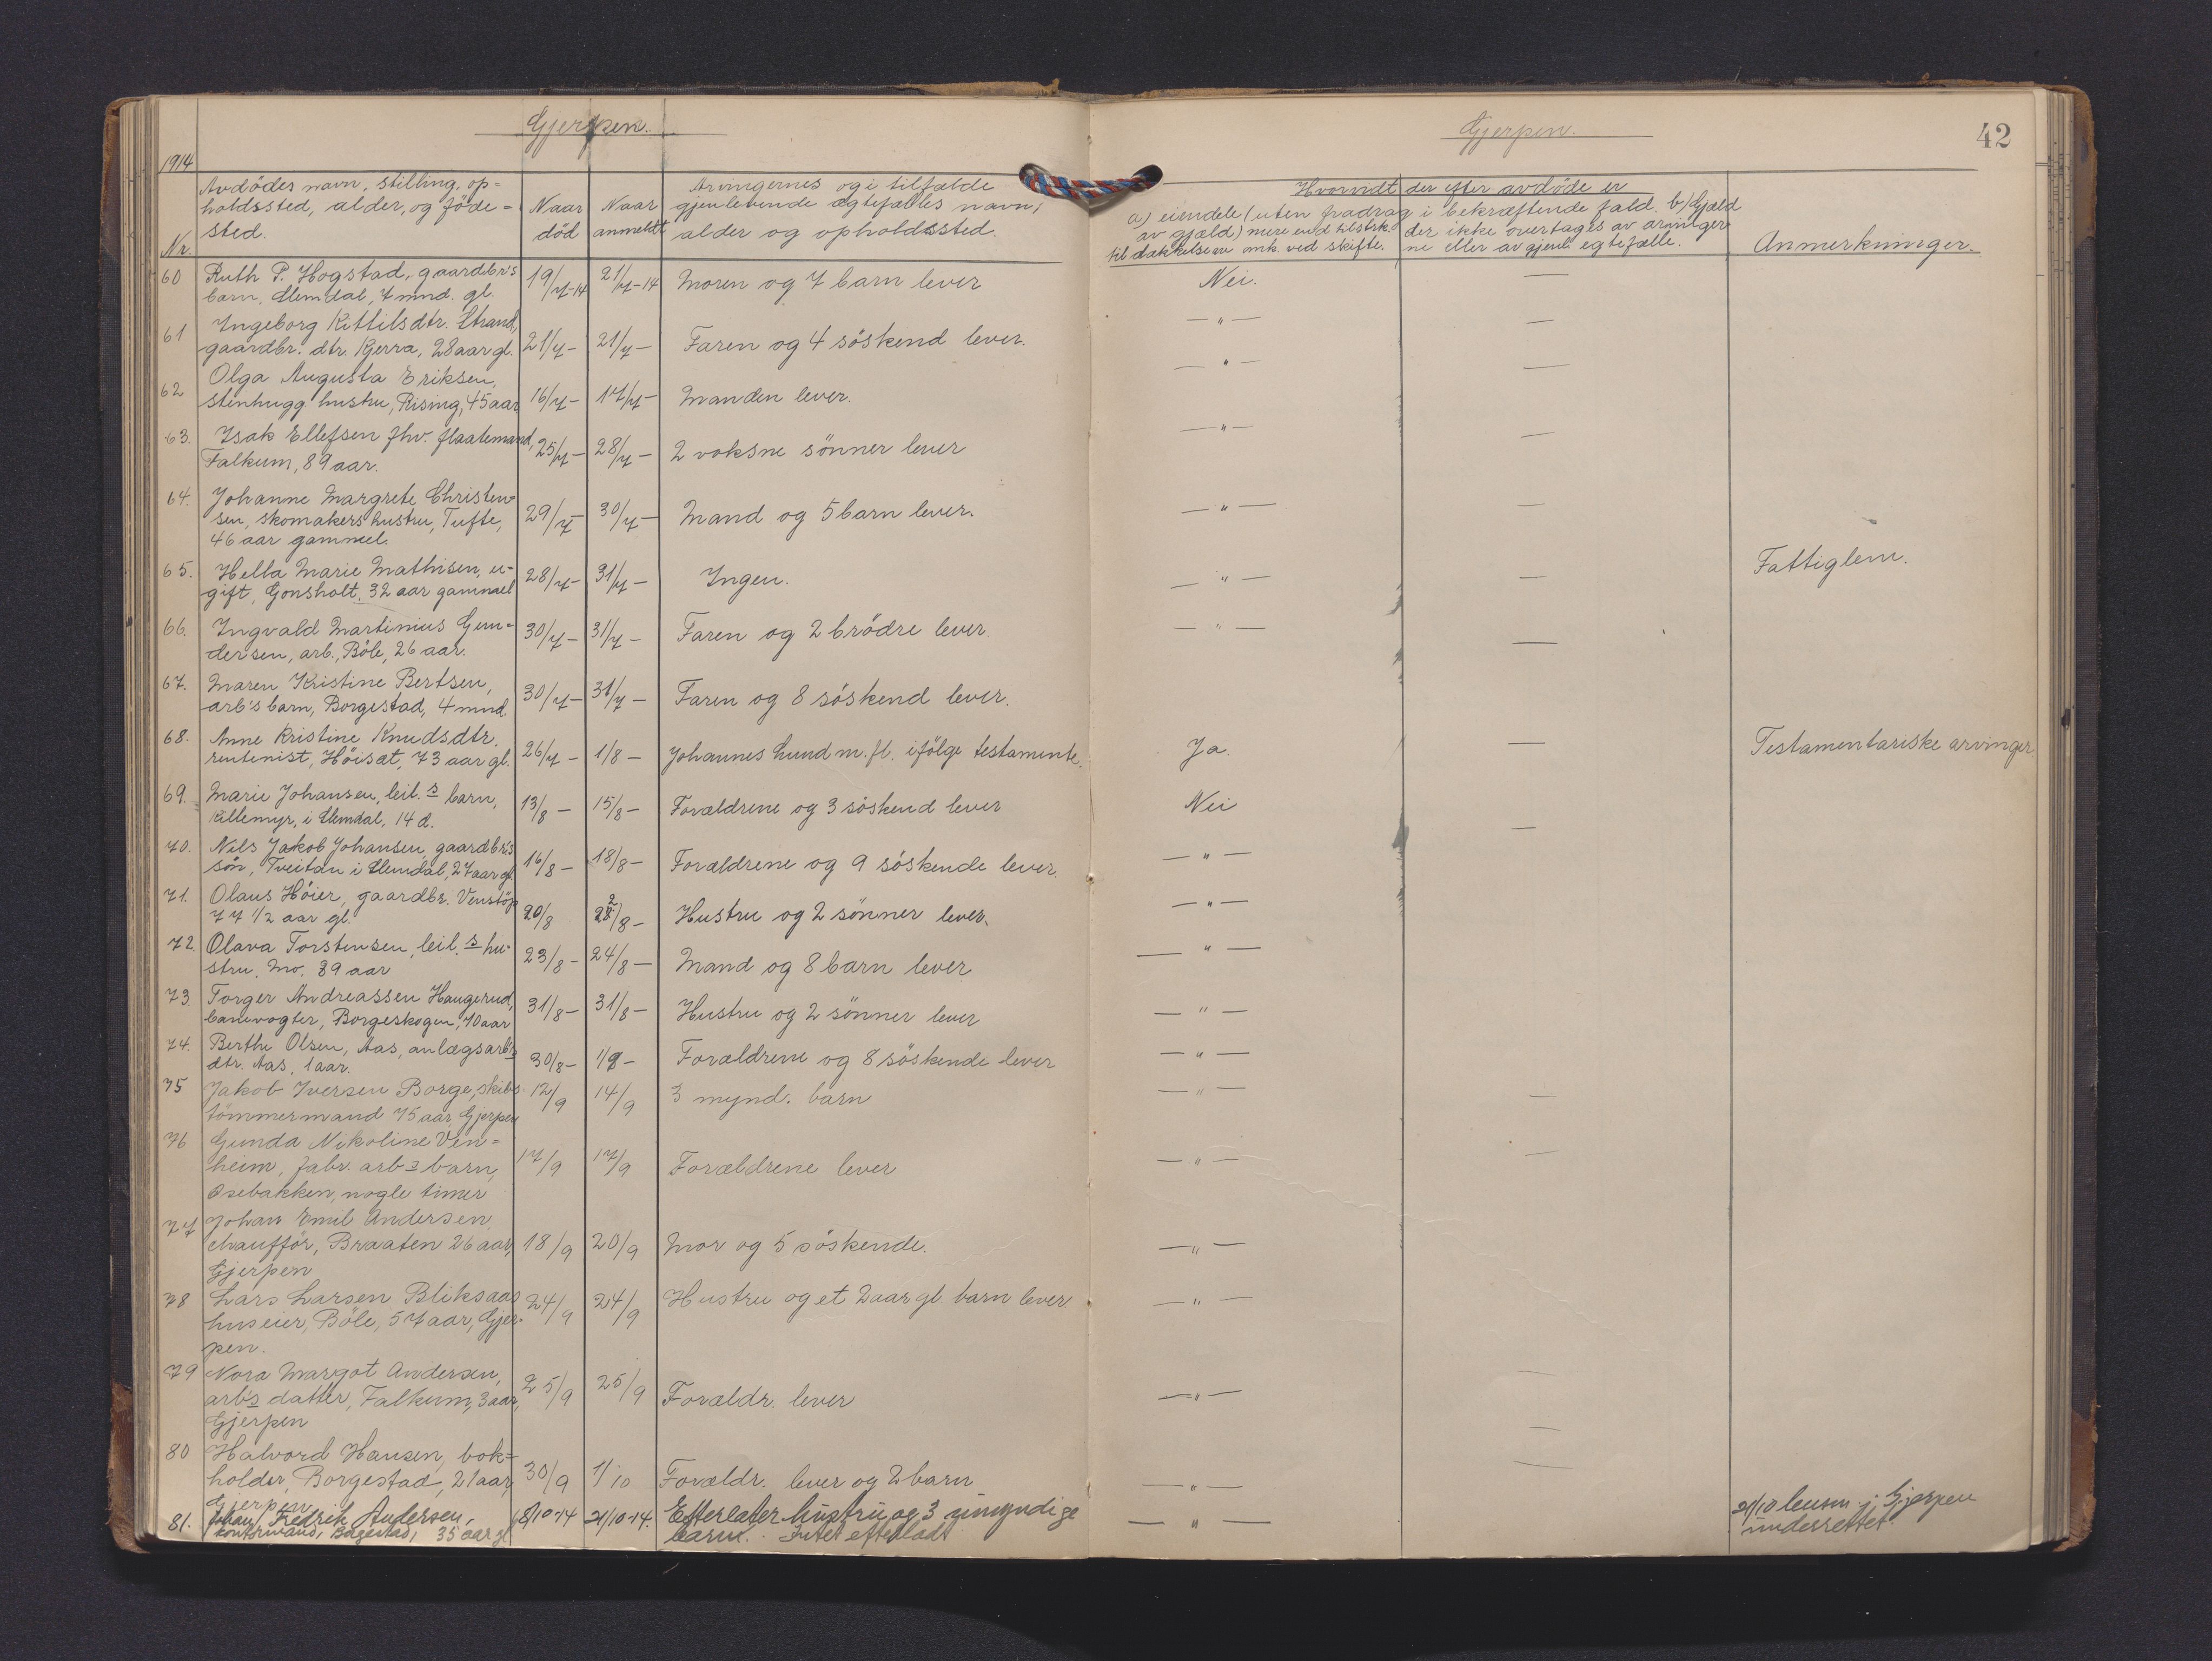 Gjerpen.
1914
Avdödes navn, stilling, op=
holdssted, alder, og föde=
sted.
Nr.
Naar
död
Naar
anmeldt
Arvingernes og i tilfælde
gjenlevende ægtefælles navn,
alder og opholdssted.
60 Ruth P. Hogstad, gaardbr's 19/7-14 21/7-14 Moren og 7 barn lever
barn, Slemdal, 7 mnd. gl.
61 Ingeborg Kittilsdtr. Strand, 21/7- 21/7- Faren og 4 söskend lever.
gaardbr. dtr. Kjerra, 28 aar gl.
62 Olga Augusta Eriksen, 16/7- 17/7- Manden lever.
stenhugg hustru, Rising, 45 aar
63. Isak Ellefsen fhv. flaatemand, 25/7- 28/7- 2 voksne sönner lever
Falkum, 89 aar.
64. Johanne Margrete Christen= 29/7- 30/7- Mand og 5 barn lever.
sen, skomakers hustru, Tufte,
46 aar gammel.
65. Hella Marie Mathisen, u- 28/7- 31/7- Ingen.
gift, Gonsholt, 32 aar gammel
66. Ingvald Martinius Gun= 30/7- 31/7- Faren og 2 brödre lever.
dersen, arb., Böle, 26 aar.
67. Maren Kristine Bertsen, 30/7- 31/7- Faren og 8 söskend lever.
arb's barn, Borgestad, 4 mnd.
68. Anne Kristine Knudsdtr. 26/7- 1/8- Johannes Lund m. fl. ifölge testamente.
rentenist, Höisæt, 73 aar gl.
69. Marie Johansen, leil.s barn, 13/8- 15/8- Forældrene og 3 söskend lever
Killemyr, i Slemdal, 14 d.
70. Nils Jakob Johansen, gaardbr's 16/8- 18/8- Forældrene og 9 söskende lever.
sön, Tveitan i Slemdal, 27 aar gl.
71. Olaus Höier, gaardbr. Venstöp 20/8 22/8- Hustru og 2 sönner lever.
77 1/2 aar gl.
72. Olava Torstensen, leil.s hu- 23/8- 24/8- Mand og 8 barn lever
stru, Mo, 39 aar
73. Torger Andreassen Haugerud, 31/8- 31/8- Hustru og 2 sönner lever
banevogter, Borgeskogen, 70 aar
74. Berthe Olsen, Aas, anlægsarb's 30/8- 1/9- Forældrene og 8 söskende lever
dtr. Aas, 1 aar.
75 Jakob Iversen Borge, skibs 12/9 14/9 3 mynd. barn
tömmermand 75 aar, Gjerpen
76 Gunda Nikoline Ven= 17/9 17/9 Forældrene lever
heim, fabr. arbs barn,
Osebakken, nogle timer
77 Johan Emil Andersen, 18/9 20/9 Mor og 5 söskende.
chaufför, Braaten 26 aar,
Gjerpen
78 Lars Larsen Bliksaas 24/9 24/9 Hustru og et 2 aar gl. barn lever.
huseier, Böle, 57 aar, Gjer-
pen.
79 Nora Margot Andersen, 25/9 25/9 Forældr. lever
arbs datter, Falkum, 3 aar,
Gjerpen
80 Halvord Hansen, bok= 30/9 1/10 Forældr. lever og 2 barn
holder, Borgestad, 21 aar,
Gjerpen
81. Johan Fredrik Andersen, 18/10-14 21/10-14. Efterlater hustru og 3 umyndige
kontormand, Borgestad, 35 aar gl barn. Intet efterladt
Gjerpen.
42
Hvorvidt der efter avdöde er
a) eiendele (uten fradrag i bekræftende fald. b) Gjæld
av gjæld) mere end tilstrk. der ikke overtages av arvinger
til dækkelse av omk. ved skifte. ne eller av gjenl. egtefælle.
Anmerkninger.
Nei. —
— " — —
— " — —
— " — —
— " — —
— " — — Fattiglem.
— " — —
Ja. — Testamentariske arvinger
Nei —
— " —
— " —
— " —
— " —
— " —
— " — —
— " — —
— " —
— " —
— " — —
— " — —
— " — 21/10 lensm. i Gjerpen
underrettet.